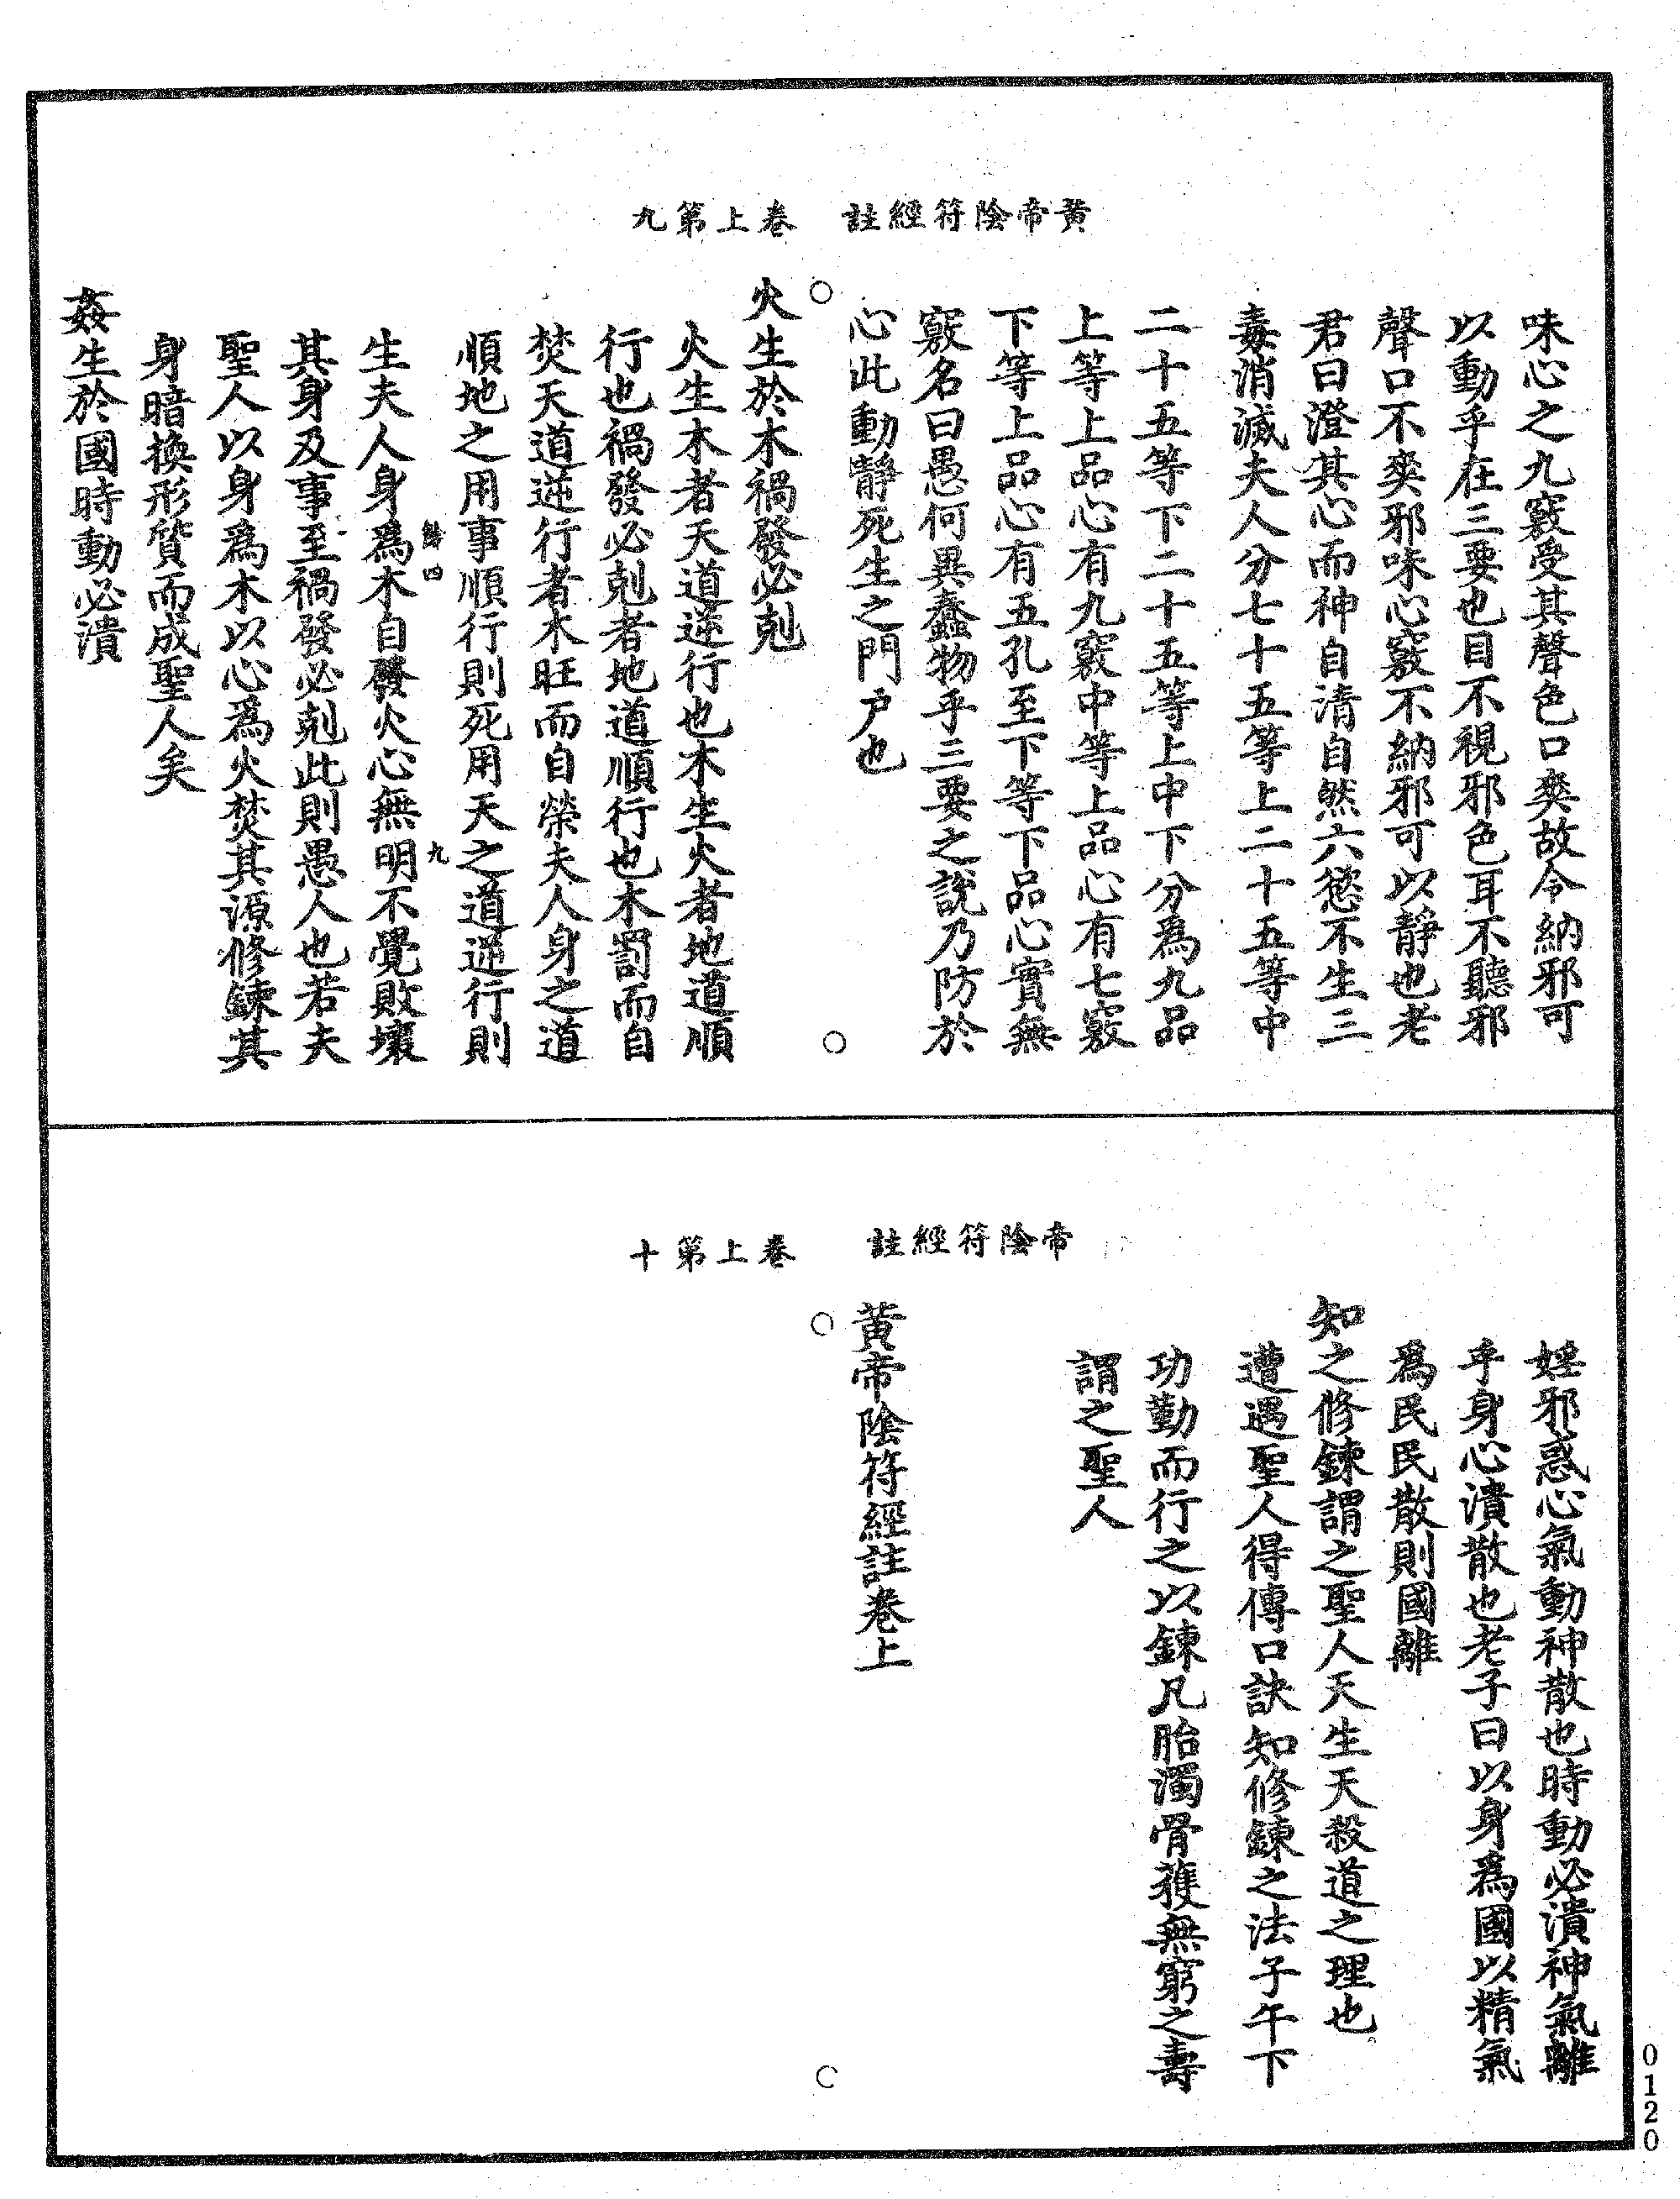 黃帝陰符經註　卷上第九
味心之九竅受其聲色口爽故令納邪可
以動乎在三要也目不視邪色耳不聽邪
聲口不爽邪味心竅不納邪可以靜也老
君曰澄其心而神自清自然六慾不生三
毒消滅夫人分七十五等上二十五等中
二十五等下二十五等上中下分為九品
上等上品心有九竅中等上品心有七竅
下等上品心有五孔至下等下品心實無
竅名曰愚何異蠢物乎三要之說乃防於
心此動靜死生之門戶也
火生於木禍發必剋
火生木者天道逆行也木生火者地道順
行也禍發必剋者地道順行也木罰而自
焚天道逆行者木旺而自榮夫人身之道
順地之用事順行則死用天之道逆行則
四　九
生夫人身為木自發火心無明不覺敗壞
其身及事至禍發必剋此則愚人也若夫
聖人以身為木以心為火焚其源修鍊其
身暗換形質而成聖人矣
姦生於國時動必潰
帝陰符經註　卷上第十
婬邪惑心氣動神散也時動必潰神氣離
乎身心潰散也老子曰以身為國以精氣
為民民散則國離
知之修鍊謂之聖人天生天殺道之理也
遭遇聖人得傳口訣知修鍊之法子午下
功勤而行之以鍊凡胎濁骨獲無窮之壽
謂之聖人
黃帝陰符經註卷上
0120